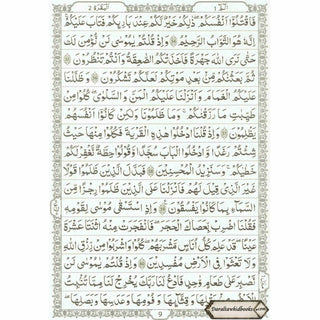 البقرة ٢
الٓمّٓ ١
فَاقْتُلُوْٓا اَنْفُسَكُمْ ؕ ذٰلِكُمْ خَيْرٌ لَّكُمْ عِنْدَ بَارِىِٕكُمْ ؕ فَتَابَ عَلَيْكُمْ ؕ
اِنَّهٗ هُوَ التَّوَّابُ الرَّحِيْمُ ۝ وَاِذْ قُلْتُمْ يٰمُوْسٰى لَنْ نُّؤْمِنَ لَكَ
حَتّٰى نَرَى اللّٰهَ جَهْرَةً فَاَخَذَتْكُمُ الصّٰعِقَةُ وَاَنْتُمْ تَنْظُرُوْنَ ۝
ثُمَّ بَعَثْنٰكُمْ مِّنْۢ بَعْدِ مَوْتِكُمْ لَعَلَّكُمْ تَشْكُرُوْنَ ۝ وَظَلَّلْنَا
عَلَيْكُمُ الْغَمَامَ وَاَنْزَلْنَا عَلَيْكُمُ الْمَنَّ وَالسَّلْوٰى ؕ كُلُوْا مِنْ
طَيِّبٰتِ مَا رَزَقْنٰكُمْ ؕ وَمَا ظَلَمُوْنَا وَلٰكِنْ كَانُوْٓا اَنْفُسَهُمْ
يَظْلِمُوْنَ ۝ وَاِذْ قُلْنَا ادْخُلُوْا هٰذِهِ الْقَرْيَةَ فَكُلُوْا مِنْهَا حَيْثُ
شِئْتُمْ رَغَدًا وَّادْخُلُوا الْبَابَ سُجَّدًا وَّقُوْلُوْا حِطَّةٌ نَّغْفِرْ لَكُمْ
خَطٰيٰكُمْ ؕ وَسَنَزِيْدُ الْمُحْسِنِيْنَ ۝ فَبَدَّلَ الَّذِيْنَ ظَلَمُوْا قَوْلًا
غَيْرَ الَّذِيْ قِيْلَ لَهُمْ فَاَنْزَلْنَا عَلَى الَّذِيْنَ ظَلَمُوْا رِجْزًا مِّنَ
السَّمَآءِ بِمَا كَانُوْا يَفْسُقُوْنَ ۝ وَاِذِ اسْتَسْقٰى مُوْسٰى لِقَوْمِهٖ
فَقُلْنَا اضْرِبْ بِّعَصَاكَ الْحَجَرَ ؕ فَانْفَجَرَتْ مِنْهُ اثْنَتَا عَشْرَةَ
عَيْنًا ؕ قَدْ عَلِمَ كُلُّ اُنَاسٍ مَّشْرَبَهُمْ ؕ كُلُوْا وَاشْرَبُوْا مِنْ رِّزْقِ اللّٰهِ
وَلَا تَعْثَوْا فِى الْاَرْضِ مُفْسِدِيْنَ ۝ وَاِذْ قُلْتُمْ يٰمُوْسٰى لَنْ
نَّصْبِرَ عَلٰى طَعَامٍ وَّاحِدٍ فَادْعُ لَنَا رَبَّكَ يُخْرِجْ لَنَا مِمَّا تُنْۢبِتُ
الْاَرْضُ مِنْۢ بَقْلِهَا وَقِثَّآىِٕهَا وَفُوْمِهَا وَعَدَسِهَا وَبَصَلِهَا ؕ
9
Darultawhidbooks.com